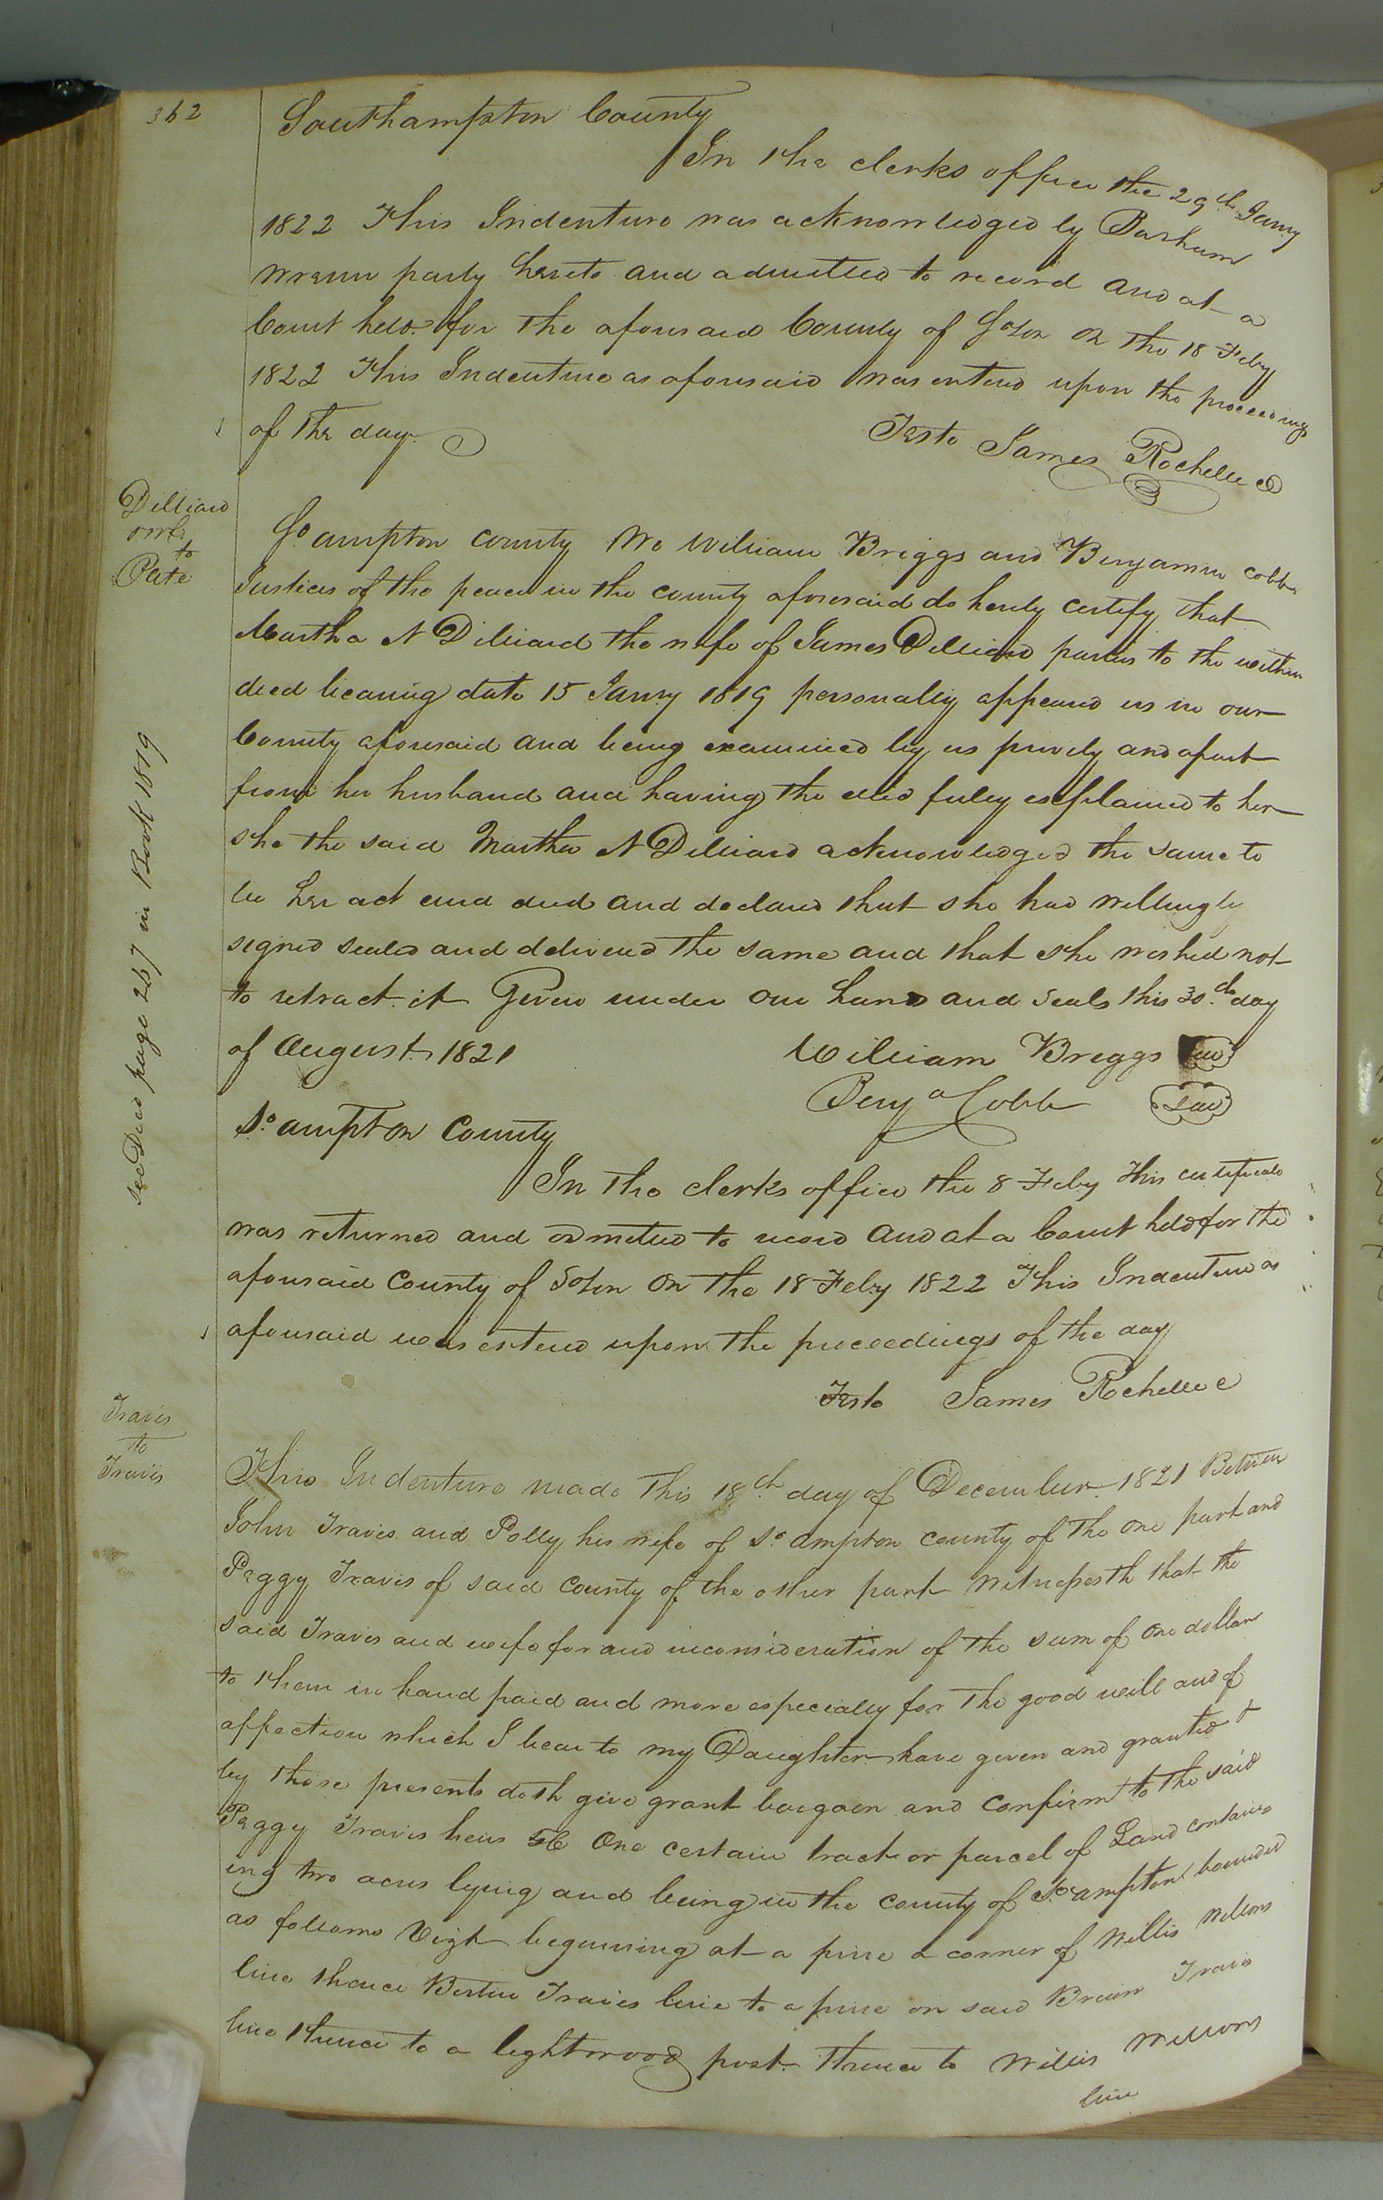 362
Southampton County
In the clerks office the 29th Jany
1822 This Indenture was acknowledged by Barham
Wrenn party hereto and admitted to record and at a
Court held for the aforesaid County of Soton on the 18 Feby
1822 This Indenture as aforesaid was entered upon the proceedings
of the day.
Teste James Rochelle C
Dilliard
to
Pate
So ampton County We William Briggs and Benjamin Cobb
Justices of the peace in the county aforesaid do hereby certify that
Martha N Dilliard the wife of James Dilliard parties to the within
deed bearing date 15 Jany 1819 personally appeared us in our
County aforesaid and being examined by us privily and apart
from her husband and having the deed fully explained to her
she the said Martha N Dilliard acknowledged the same to
be her act and deed and declared that she had willingly
signed sealed and delivered the same and that she wished not
to retract it Given under our hand and seals this 30th day
of August 1821
William Briggs
Benja Cobb
See Deed page 267 in Book 1819
So ampton County
In the clerks office the 8 Feby This certificate
was returned and admitted to record and at a Court held for the
aforesaid County of Soton on the 18 Feby 1822 This Indenture as
aforesaid was entered upon the proceedings of the day
Teste James Rochelle C
Travis
to
Travis
This Indenture made this 18th day of December 1821 Between
John Travis and Polly his wife of So ampton county of the one part and
Peggy Travis of said County of the other part Witnesseth that the
said Travis and wife for and inconsideration of the sum of one dollar
to them in hand paid and more especially for the good will and of
affection which I bear to my Daughter have given and granted &
by these presents doth give grant bargain and confirm to the said
Peggy Travis heirs &c One certain tract or parcel of Land contain
ing two acres lying and being in the county of So ampton bounded
as follows Vizt begining at a pine a corner of Willis
line thence Travis line to a pine on said Travis
line thence to a lightwood post thence to Willis
line